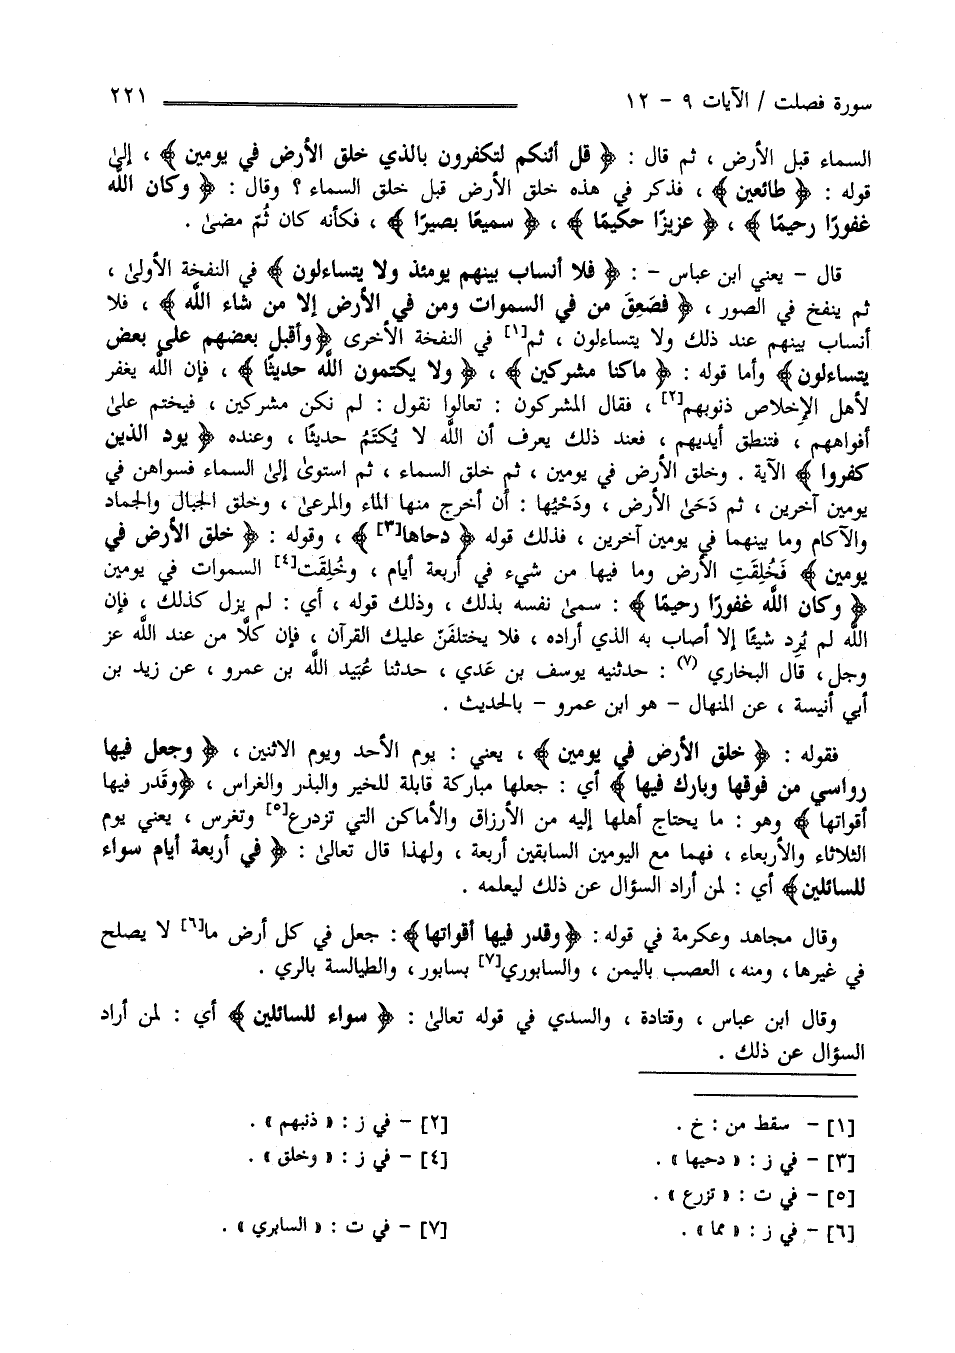 سورة فصلت / الآيات ٩ – ١٢ ٢٢١
السماء قبل الأرض ، ثم قال : ﴿ قل أئنكم لتكفرون بالذي خلق الأرض في يومين ﴾ ، إلىٰ
قوله : ﴿ طائعين ﴾ ، فذكر في هذه خلق الأرض قبل خلق السماء ؟ وقال : ﴿ وكان اللَّه
غفورًا رحيمًا ﴾ ، ﴿ عزيزًا حكيمًا ﴾ ، ﴿ سميعًا بصيرًا ﴾ ، فكأنه كان ثُمّ مضىٰ .
قال – يعني ابن عباس – : ﴿ فلا أنساب بينهم يومئذ ولا يتساءلون ﴾ في النفخة الأولىٰ ،
ثم ينفخ في الصور ، ﴿ فصَعِقَ من في السموات ومن في الأرض إلا من شاء اللَّه ﴾ ، فلا
أنساب بينهم عند ذلك ولا يتساءلون ، ثم[١] في النفخة الأخرى ﴿وأقبل بعضهم علىٰ بعض
يتساءلون﴾ وأما قوله : ﴿ ماكنا مشركين ﴾ ، ﴿ ولا يكتمون اللَّه حديثًا ﴾ ، فإن اللَّه يغفر
لأهل الإخلاص ذنوبهم[٢] ، فقال المشركون : تعالوا نقول : لم نكن مشركين ، فيختم علىٰ
أفواههم ، فتنطق أيديهم ، فعند ذلك يعرف أن اللَّه لا يُكتَمُ حديثًا ، وعنده ﴿ يود الذين
كفروا ﴾ الآية . وخلق الأرض في يومين ، ثم خلق السماء ، ثم استوىٰ إلىٰ السماء فسواهن في
يومين آخرين ، ثم دَحَىٰ الأرض ، ودَحْيُها : أن أخرج منها الماء والمرعىٰ ، وخلق الجبال والجماد
والآكام وما بينهما في يومين آخرين ، فذلك قوله ﴿ دحاها[٣] ﴾ ، وقوله : ﴿ خلق الأرض في
يومين ﴾ فَخُلِقَتِ الأرض وما فيها من شيء في أربعة أيام ، وخُلِقَت[٤] السموات في يومين
﴿ وكان اللَّه غفورًا رحيمًا ﴾ : سمىٰ نفسه بذلك ، وذلك قوله ، أي : لم يزل كذلك ، فإن
اللَّه لم يُرِد شيئًا إلا أصاب به الذي أراده ، فلا يختلفَنّ عليك القرآن ، فإن كلًّا من عند اللَّه عز
وجل، قال البخاري (٧) : حدثنيه يوسف بن عَدي ، حدثنا عُبَيد اللَّه بن عمرو ، عن زيد بن
أبي أنيسة ، عن المنهال – هو ابن عمرو – بالحديث .
فقوله : ﴿ خلق الأرض في يومين ﴾ ، يعني : يوم الأحد ويوم الاثنين ، ﴿ وجعل فيها
رواسي من فوقها وبارك فيها ﴾ أي : جعلها مباركة قابلة للخير والبذر والغراس ، ﴿وقدر فيها
أقواتها ﴾ وهو : ما يحتاج أهلها إليه من الأرزاق والأماكن التي تزدرع[٥] وتغرس ، يعني يوم
الثلاثاء والأربعاء ، فهما مع اليومين السابقين أربعة ، ولهذا قال تعالىٰ : ﴿ في أربعة أيام سواء
للسائلين﴾ أي : لمن أراد السؤال عن ذلك ليعلمه .
وقال مجاهد وعكرمة في قوله : ﴿وقدر فيها أقواتها﴾ : جعل في كل أرض ما[٦] لا يصلح
في غيرها ، ومنه، العصب باليمن ، والسابوري[٧] بسابور، والطيالسة بالري .
وقال ابن عباس ، وقتادة ، والسدي في قوله تعالىٰ : ﴿ سواء للسائلين ﴾ أي : لمن أراد
السؤال عن ذلك .
[١] – سقط من : خ . [٢] – في ز : « ذنبهم » .
[٣] – في ز : « دحيها » . [٤] – في ز : « وخلق » .
[٥] – في ت : « تزرع » .
[٦] – في ز : « مما » . [٧] – في ت : « السابري » .